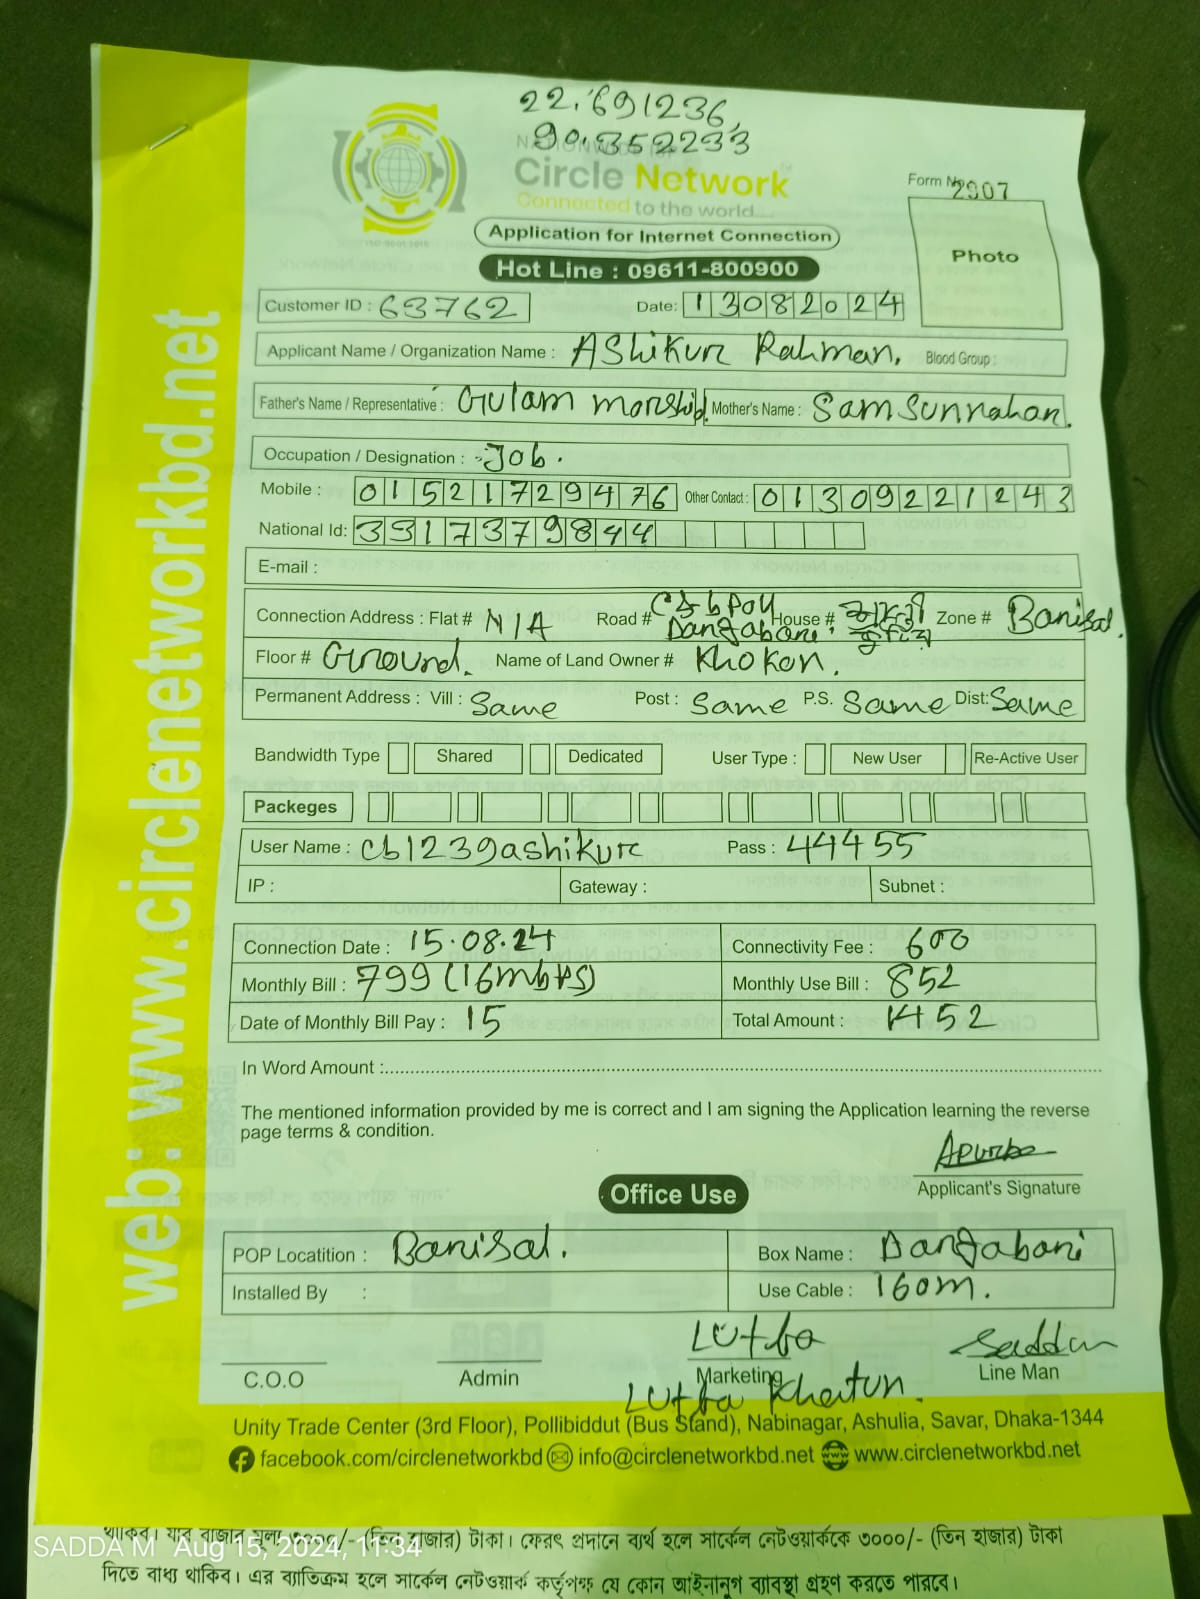 22.691236,
90.352233
Circle Network
Connected to the world
Form No 2907
Application for Internet Connection
Photo
Hot Line : 09611-800900
Customer ID : 63762 Date: 13082024
Applicant Name / Organization Name : Ashikur Rahman. Blood Group :
Father's Name / Representative : Gulam morshid. Mother's Name : Samsunnahar.
Occupation / Designation : Job.
Mobile : 01521729476 Other Contact : 01309221243
National Id: 3317379844
E-mail :
Connection Address : Flat # N/A Road # C&b Pol Dangabani. House # Zone # Barisal.
Floor # Ground. Name of Land Owner # Khokon.
Permanent Address : Vill : Same Post : Same P.S. Same Dist: Same
Bandwidth Type Shared Dedicated User Type : New User Re-Active User
Packeges
User Name : cb1239ashikur Pass : 44455
IP : Gateway : Subnet :
Connection Date : 15.08.24 Connectivity Fee : 600
Monthly Bill : 799 (16mbps) Monthly Use Bill : 852
Date of Monthly Bill Pay : 15 Total Amount : 1452
In Word Amount :
The mentioned information provided by me is correct and I am signing the Application learning the reverse
page terms & condition.
Apurba
Applicant's Signature
Office Use
POP Locatition : Barisal. Box Name : Dangabari
Installed By : Use Cable : 160m.
Lutba Saddam
C.O.O Admin Marketing Line Man
Lutba Khatun.
Unity Trade Center (3rd Floor), Pollibiddut (Bus Stand), Nabinagar, Ashulia, Savar, Dhaka-1344
facebook.com/circlenetworkbd info@circlenetworkbd.net www.circlenetworkbd.net
web: www.circlenetworkbd.net
থাকিব। যার বাজার মূল্য ৩০০০/- (তিন হাজার) টাকা। ফেরৎ প্রদানে ব্যর্থ হলে সার্কেল নেটওয়ার্ককে ৩০০০/- (তিন হাজার) টাকা
SADDA M Aug 15, 2024, 11:34
দিতে বাধ্য থাকিব। এর ব্যাতিক্রম হলে সার্কেল নেটওয়ার্ক কর্তৃপক্ষ যে কোন আইনানুগ ব্যাবস্থা গ্রহণ করতে পারবে।